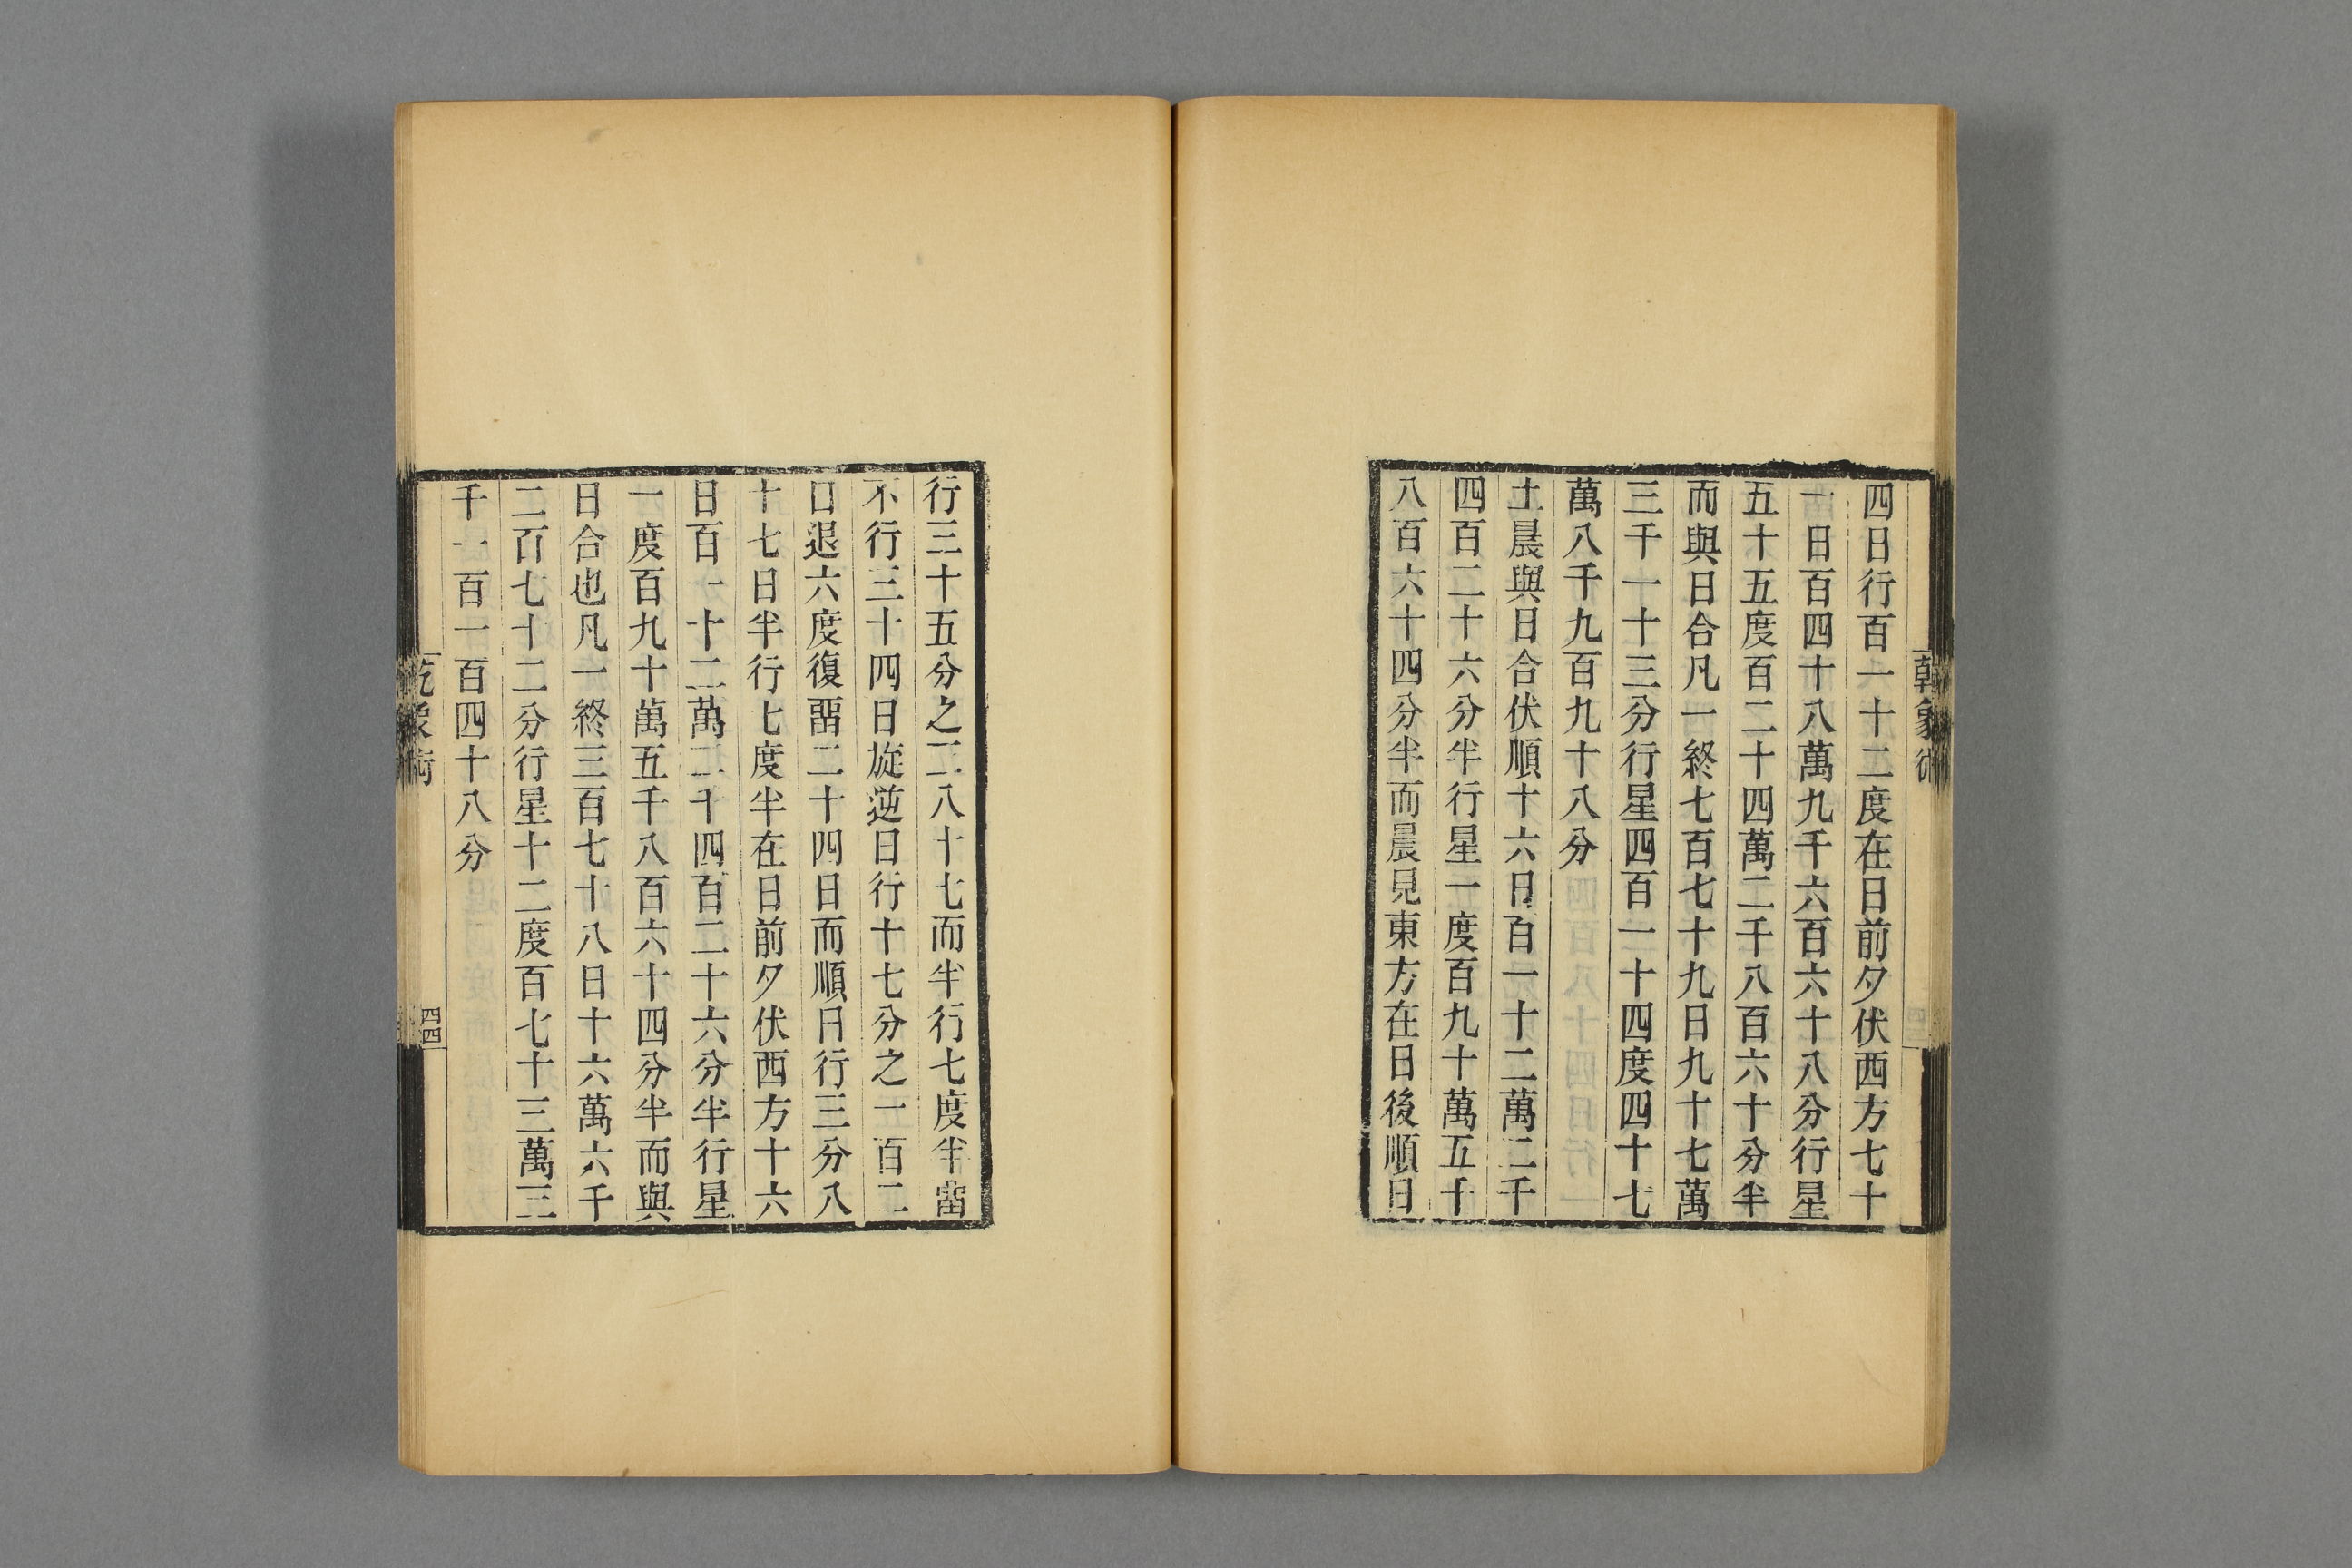 四日行百一十二度在日前夕伏西方七十
一日百四十八萬九千六百六十八分行星
五十五度百二十四萬二千八百六十分半
而與日合凡一終七百七十九日九十七萬
三千一十三分行星四百一十四度四十七
萬八千九百九十八分
土晨與日合伏順十六日百一十二萬二千
四百二十六分半行星一度百九十萬五千
八百六十四分半而晨見東方在日後順日
行三十五分之二八十七而半行七度半畱
不行三十四日旋逆日行十七分之一百二
日退六度復畱二十四日而順日行三分八
十七日半行七度半在日前夕伏西方十六
日百一十二萬二千四百二十六分半行星
一度百九十萬五千八百六十四分半而與
日合也凡一終三百七十八日十六萬六千
二百七十二分行星十二度百七十三萬三
千一百一百四十八分
乾象術
四四